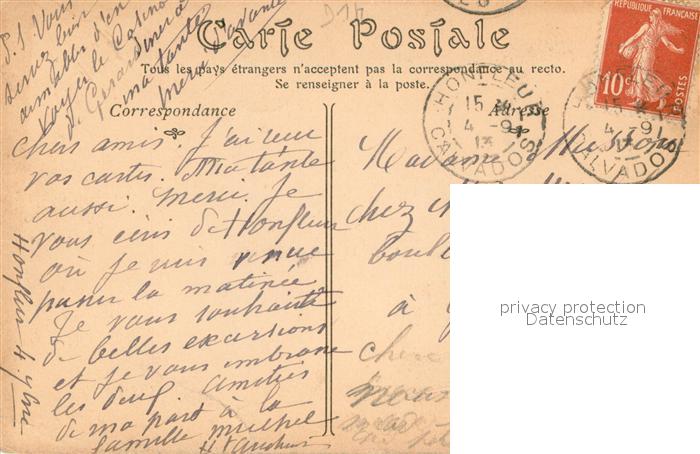 P.S Vous
serez bien
aimables d'en
voyer le Casino
de Gerardmer à
ma tante
merci d'avance
D14
Carte Postale
Tous les pays étrangers n'acceptent pas la correspondance au recto.
Se renseigner à la poste.
Correspondance
Adresse
REPUBLIQUE FRANÇAISE
10c
POSTES
HONFLEUR
15
4 -9
13
CALVADOS
4 -9
CALVADOS
Chers amis. J'ai reçu
vos cartes. Ma tante
aussi. Merci. Je
vous écris de Honfleur
où je suis venue
passer la matinée
Je vous souhaite
de belles excursions
et je vous embrasse
les deux. Amitiés
de ma part à la
famille Michel
Honfleur 4. 9bre
Madame
chez
à
privacy protection
Datenschutz